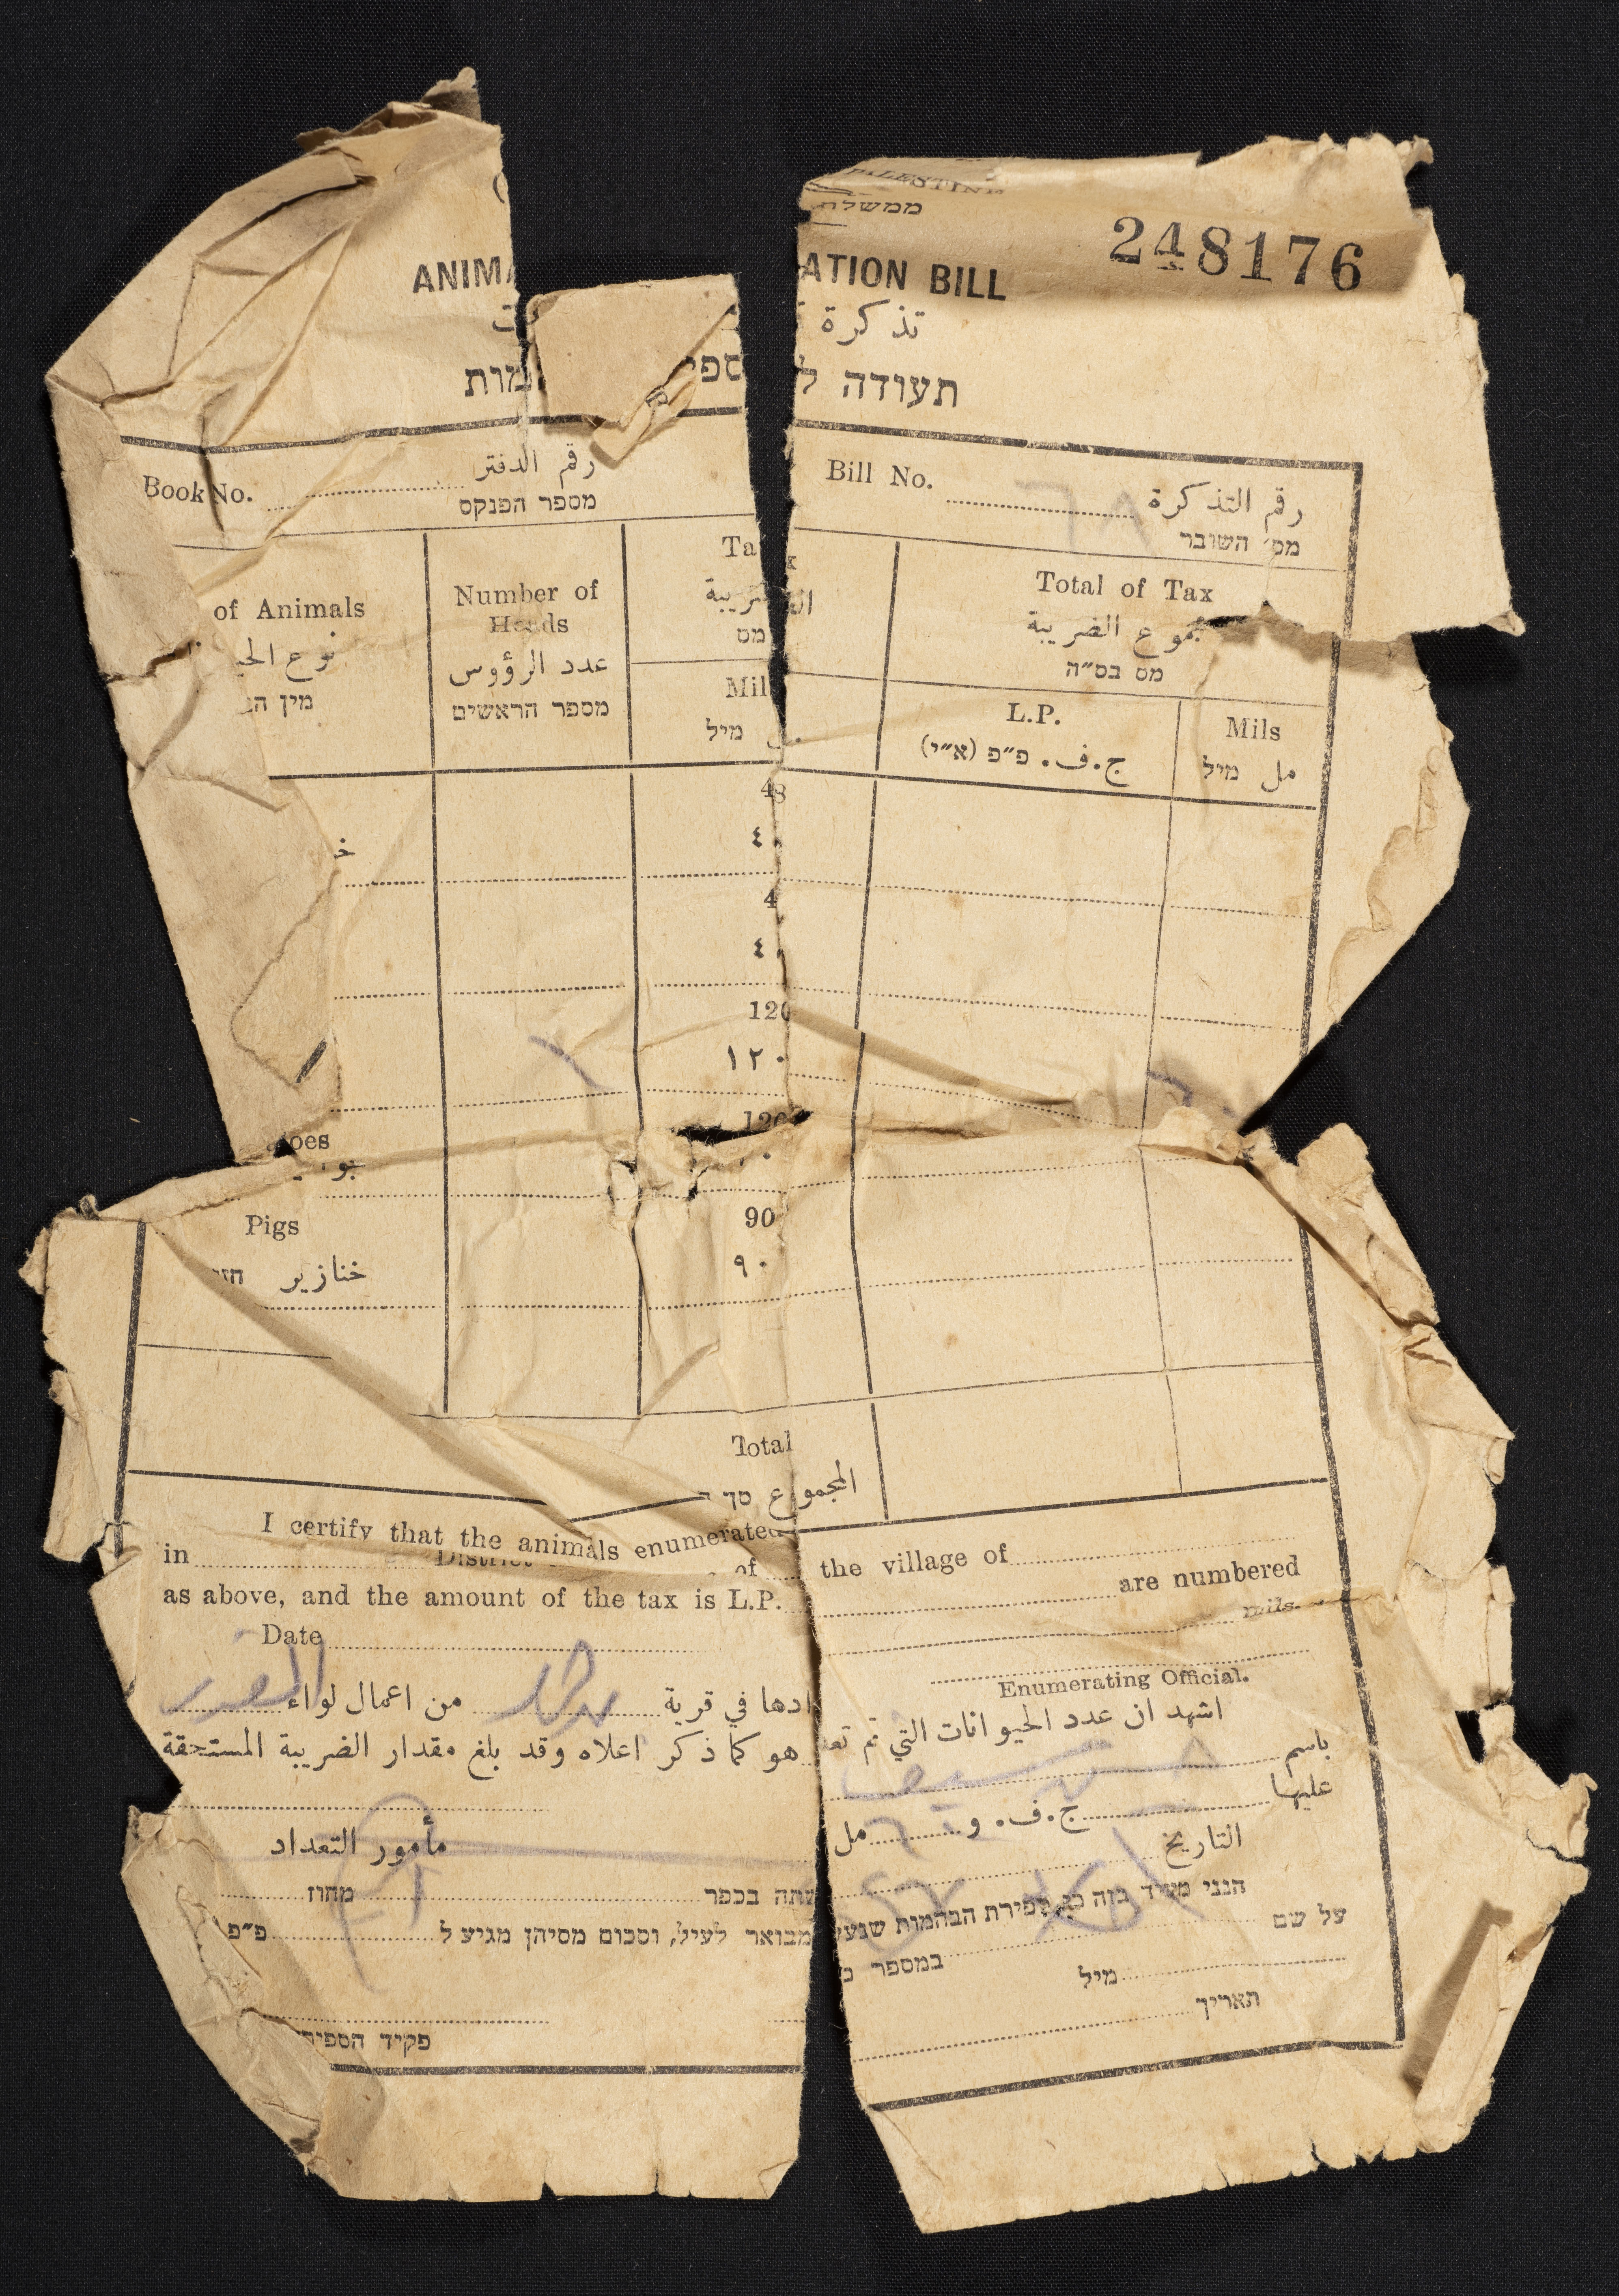 PALESTINE
ממשלת
248176
ANIMA ATION BILL
تذكرة
תעודה ל ספי מות
Book No. رقم الدفتر
מספר הפנקס
Bill No. رقم التذكرة
מס׳ השובר
of Animals
نوع الحيـ
מין הב
Number of
Heads
عدد الرؤوس
מספר הראשים
Tax
الضريبة
מס
Mil
מיל
Total of Tax
مجموع الضريبة
מס בס״ה
L.P.
ج.ف. פ״פ (א״י)
Mils
مل מיל
48
٤
4
٤
120
١٢٠
120
oes
Pigs 90
خنازير חזי ٩٠
Total
المجموع סך
I certify that the animals enumerated the village of
in District of are numbered
as above, and the amount of the tax is L.P. mils.
Date
Enumerating Official.
اشهد ان عدد الحيوانات التي تم تعدادها في قرية من اعمال لواء
باسم هو كما ذكر اعلاه وقد بلغ مقدار الضريبة المستحقة
عليها ج.ف. و مل
التاريخ مأمور التعداد
הנני מעיד בזה כי ספירת הבהמות שנעשתה בכפר מחוז
על שם במספר כמבואר לעיל, וסכום מסיהן מגיע ל פ״פ
מיל
תאריך
פקיד הספיר